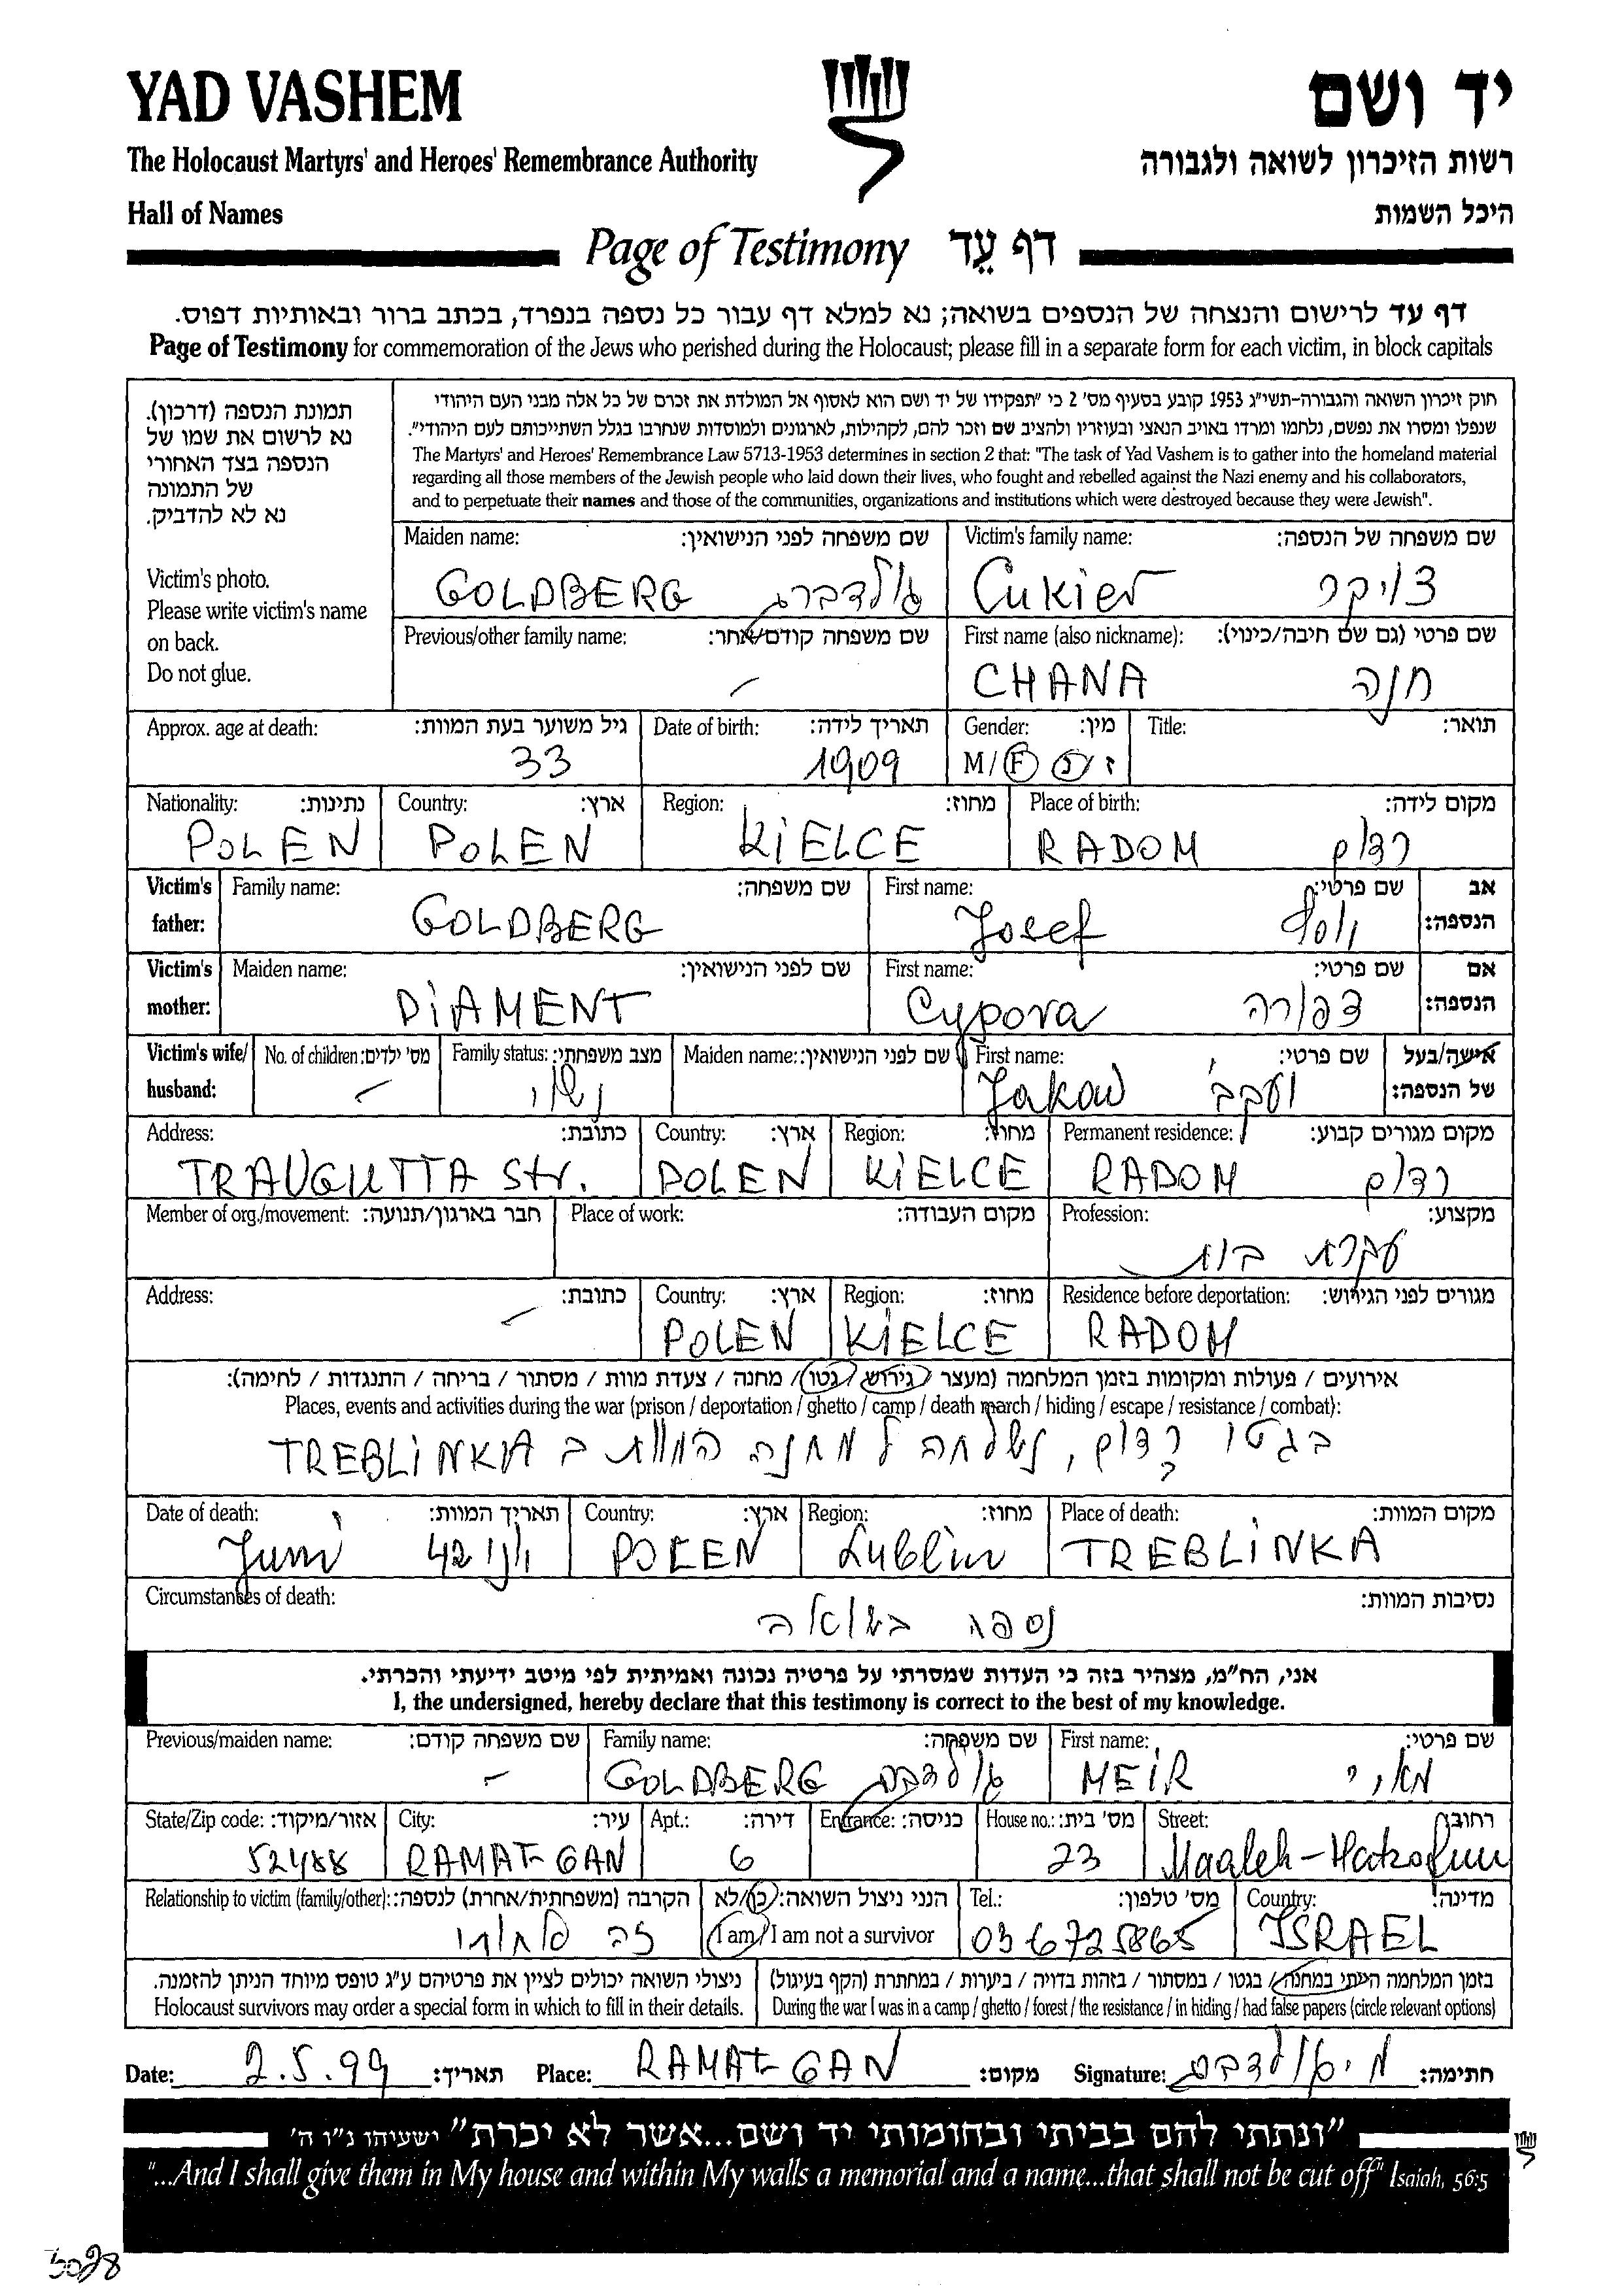 YAD VASHEM
יד ושם
The Holocaust Martyrs' and Heroes' Remembrance Authority
רשות הזיכרון לשואה ולגבורה
Hall of Names
היכל השמות
Page of Testimony דף עֵד
דף עד לרישום והנצחה של הנספים בשואה; נא למלא דף עבור כל נספה בנפרד, בכתב ברור ובאותיות דפוס.
Page of Testimony for commemoration of the Jews who perished during the Holocaust; please fill in a separate form for each victim, in block capitals
תמונת הנספה (דרכון).
נא לרשום את שמו של
הנספה בצד האחורי
של התמונה
נא לא להדביק.
Victim's photo.
Please write victim's name
on back.
Do not glue.
חוק זיכרון השואה והגבורה-תשי"ג 1953 קובע בסעיף מס' 2 כי "תפקידו של יד ושם הוא לאסוף אל המולדת את זכרם של כל אלה מבני העם היהודי
שנפלו ומסרו את נפשם, נלחמו ומרדו באויב הנאצי ובעוזריו ולהציב שם וזכר להם, לקהילות, לארגונים ולמוסדות שנחרבו בגלל השתייכותם לעם היהודי".
The Martyrs' and Heroes' Remembrance Law 5713-1953 determines in section 2 that: "The task of Yad Vashem is to gather into the homeland material
regarding all those members of the Jewish people who laid down their lives, who fought and rebelled against the Nazi enemy and his collaborators,
and to perpetuate their names and those of the communities, organizations and institutions which were destroyed because they were Jewish".
Maiden name: שם משפחה לפני הנישואין: Victim's family name: שם משפחה של הנספה:
GOLDBERG גולדברג Cukier צוקר
Previous/other family name: שם משפחה קודם/אחר: First name (also nickname): שם פרטי (גם שם חיבה/כינוי):
- CHANA חנה
Approx. age at death: גיל משוער בעת המוות: Date of birth: תאריך לידה: Gender: מין: Title: תואר:
33 1909 M/F ז/נ
Nationality: נתינות: Country: ארץ: Region: מחוז: Place of birth: מקום לידה:
POLEN POLEN KIELCE RADOM רדום
Victim's father: Family name: שם משפחה: First name: שם פרטי: אב הנספה:
GOLDBERG Josef יוסף
Victim's mother: Maiden name: שם לפני הנישואין: First name: שם פרטי: אם הנספה:
DIAMENT Cypora צפורה
Victim's wife/husband: No. of children: מס' ילדים: Family status: מצב משפחתי: Maiden name: שם לפני הנישואין: First name: שם פרטי: אישה/בעל של הנספה:
- נשוי Jakow יעקב
Address: כתובת: Country: ארץ: Region: מחוז: Permanent residence: מקום מגורים קבוע:
TRAUGUTTA Str. POLEN KIELCE RADOM רדום
Member of org./movement: חבר בארגון/תנועה: Place of work: מקום העבודה: Profession: מקצוע:
עקרת בית
Address: כתובת: Country: ארץ: Region: מחוז: Residence before deportation: מגורים לפני הגירוש:
- POLEN KIELCE RADOM
אירועים / פעולות ומקומות בזמן המלחמה (מעצר / גירוש / גטו / מחנה / צעדת מוות / מסתור / בריחה / התנגדות / לחימה):
Places, events and activities during the war (prison / deportation / ghetto / camp / death march / hiding / escape / resistance / combat):
בגטו רדום, נשלחה למחנה המוות ב TREBLINKA
Date of death: תאריך המוות: Country: ארץ: Region: מחוז: Place of death: מקום המוות:
Juni יוני 42 POLEN Lublin TREBLINKA
Circumstances of death: נסיבות המוות:
נספה בשואה
אני, הח"מ, מצהיר בזה כי העדות שמסרתי על פרטיה נכונה ואמיתית לפי מיטב ידיעתי והכרתי.
I, the undersigned, hereby declare that this testimony is correct to the best of my knowledge.
Previous/maiden name: שם משפחה קודם: Family name: שם משפחה: First name: שם פרטי:
- GOLDBERG גולדברג MEIR מאיר
State/Zip code: אזור/מיקוד: City: עיר: Apt.: דירה: Entrance: כניסה: House no.: מס' בית: Street: רחוב:
52488 RAMAT-GAN 6 23 Maaleh-
Relationship to victim (family/other): הקרבה (משפחתית/אחרת) לנספה: הנני ניצול השואה: כן/לא Tel.: מס' טלפון: Country: מדינה:
I am / I am not a survivor 03 6725865 ISRAEL
ניצולי השואה יכולים לציין את פרטיהם ע"ג טופס מיוחד הניתן להזמנה. בזמן המלחמה הייתי במחנה / בגטו / במסתור / בזהות בדויה / ביערות / במחתרת (הקף בעיגול)
Holocaust survivors may order a special form in which to fill in their details. During the war I was in a camp / ghetto / forest / the resistance / in hiding / had false papers (circle relevant options)
Date: 2.5.99 תאריך: Place: RAMAT-GAN מקום: Signature: מ. גולדברג חתימה:
"ונתתי להם בביתי ובחומותי יד ושם...אשר לא יכרת" ישעיהו נ"ו ה'
"...And I shall give them in My house and within My walls a memorial and a name...that shall not be cut off" Isaiah, 56:5